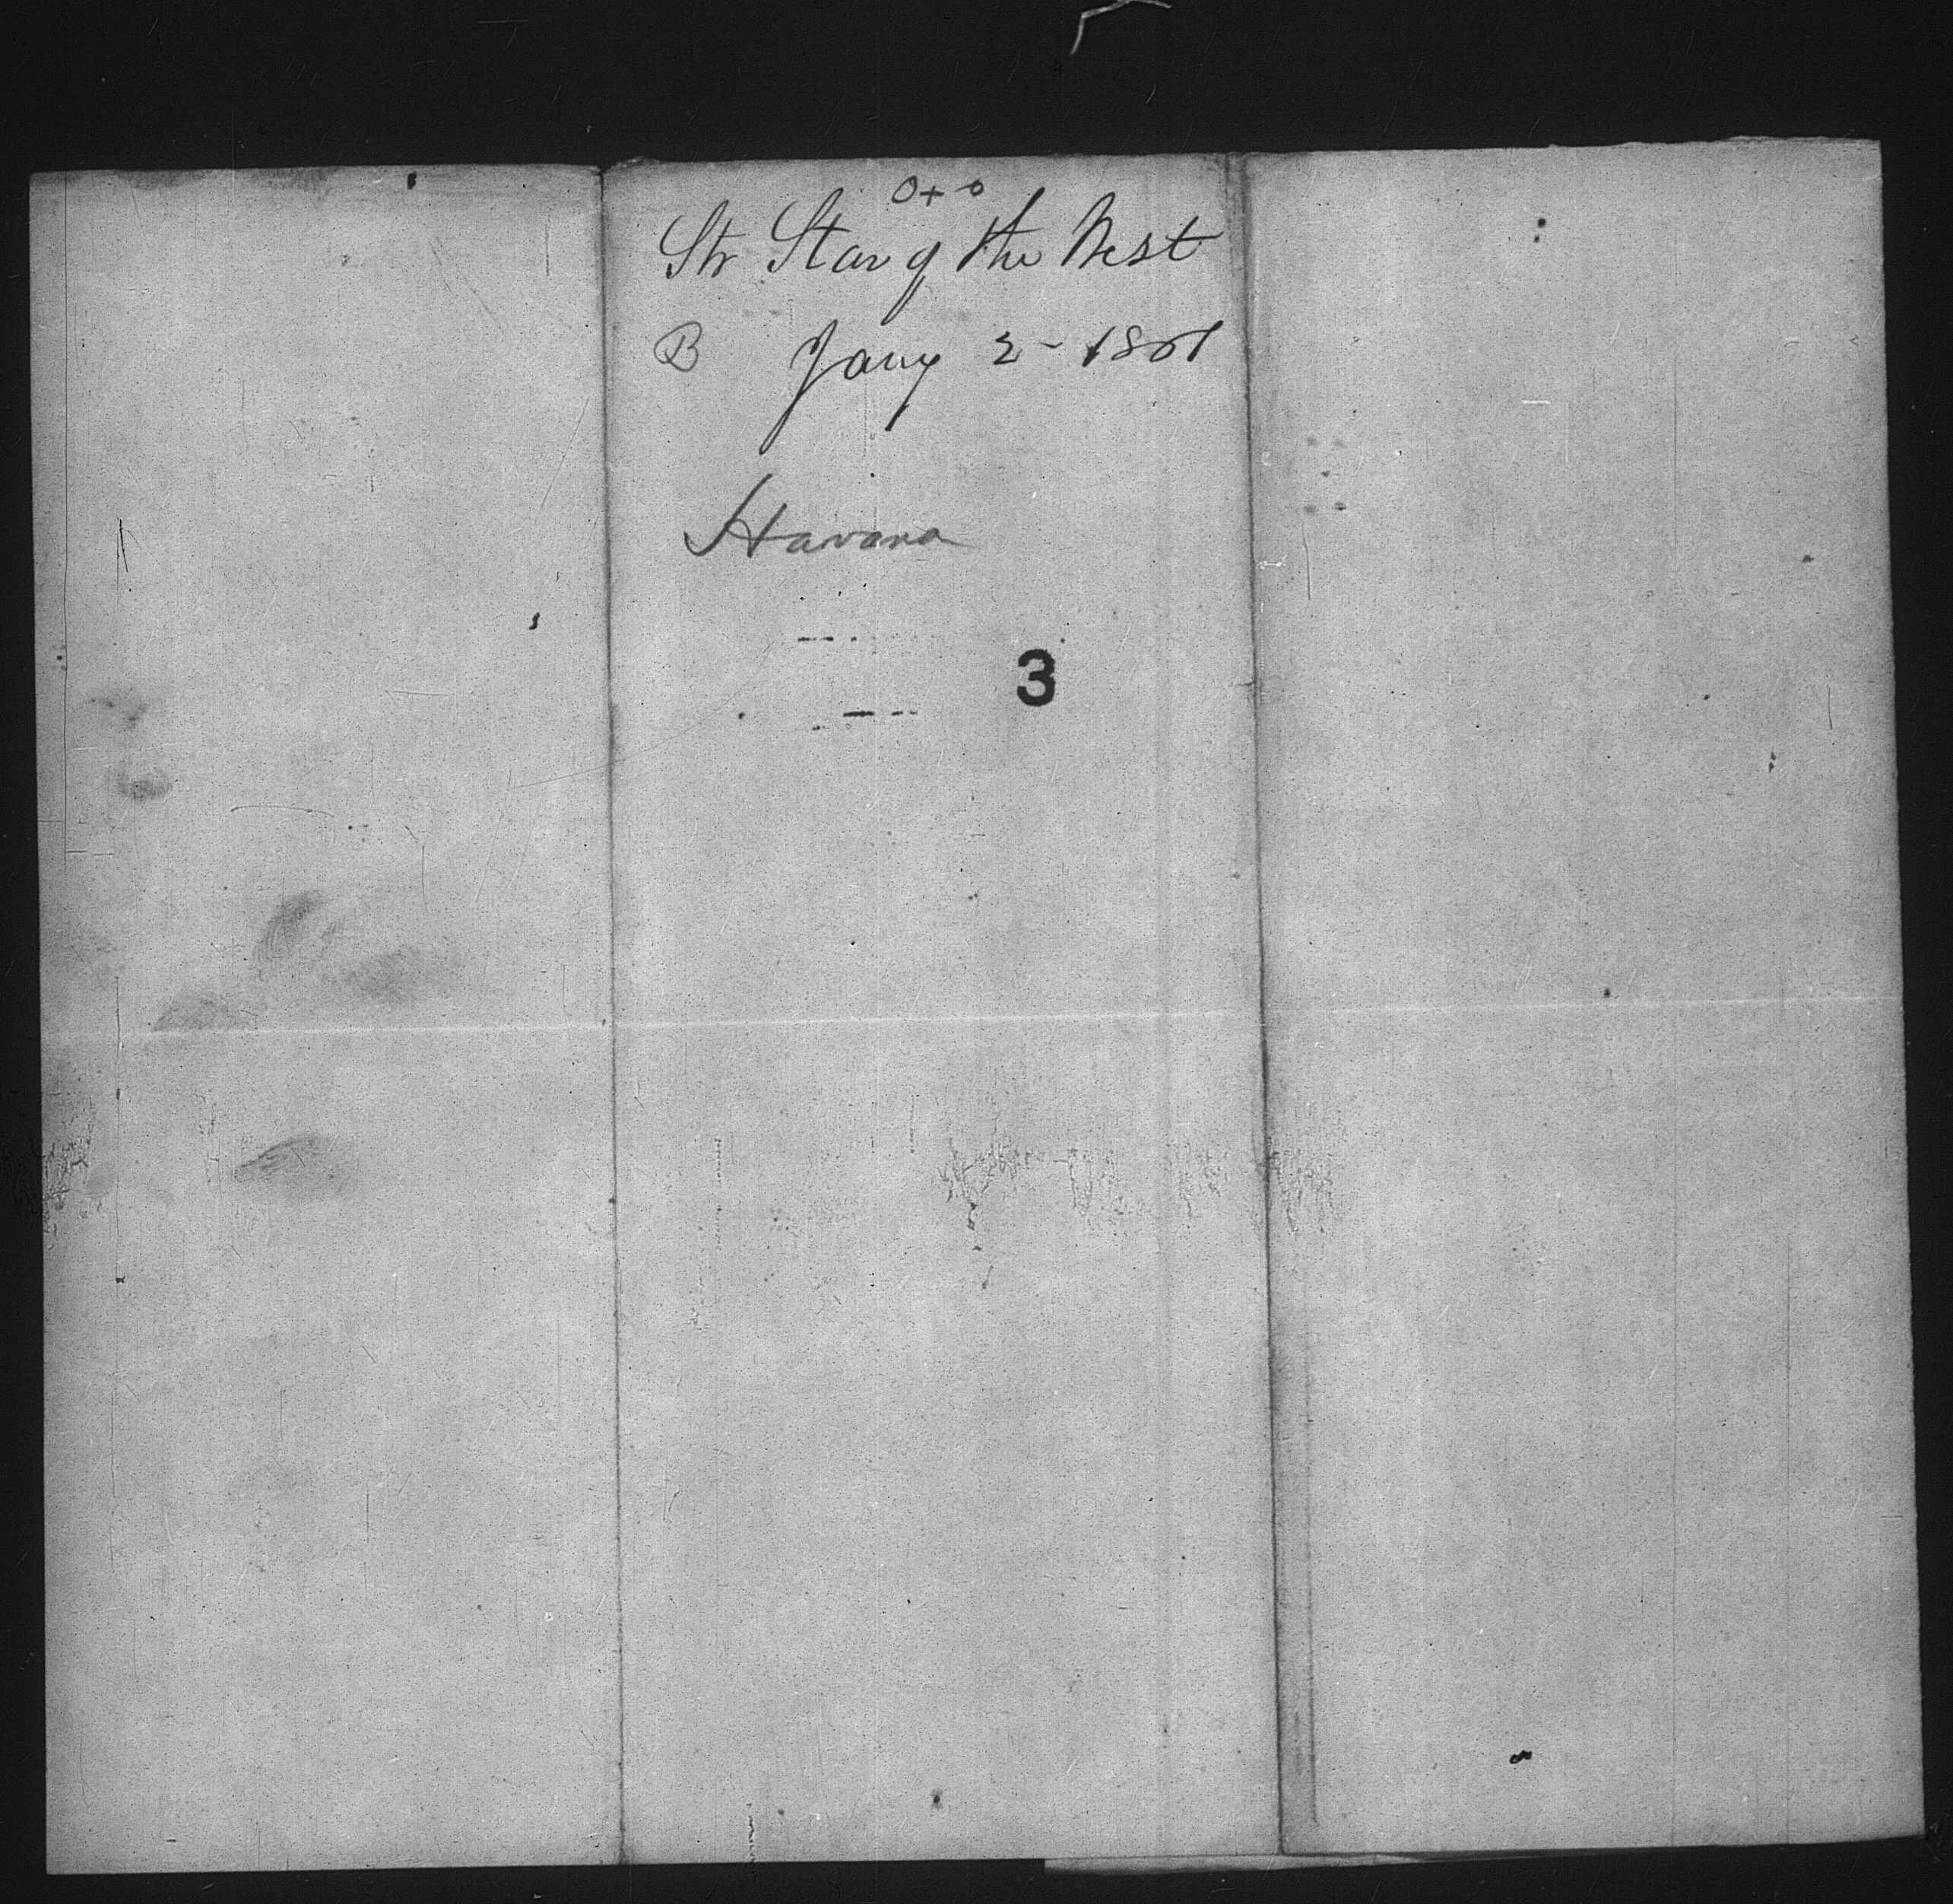 O + o
Str Star of the West
B Jany 2 - 1861
Havana
3